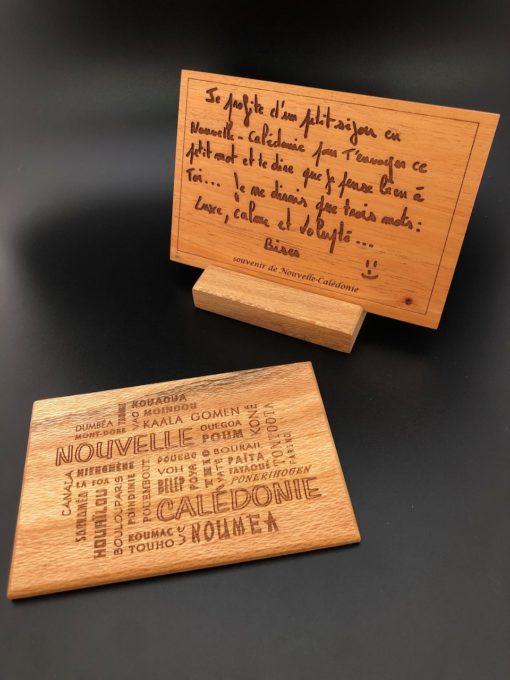 Je profite d'un petit séjour en
Nouvelle-Calédonie pour t'envoyer ce
petit mot et te dire que je pense bien à
Toi... Je ne dirais que trois mots:
Luxe, calme et Volupté...
Bises
souvenir de Nouvelle-Calédonie
KOUAOUA
DUMBÉA
MOINDOU
MONT-DORE
YAO
KAALA GOMEN
NOUVELLE
OUEGOA
POUM
KONÉ
TONTOUTA
CANALA
HIENGHÈNE
LA FOA
SARRAMÉA
HOUAÏLOU
BOULOUPARIS
POINDIMIÉ
POUEMBOUT
POUEBO
VOH
BELEP
POYA
THIO
YATÉ
BOURAIL
PAÏTA
FAYAOUÉ
FARINO
PONERIHOUEN
CALÉDONIE
KOUMAC
TOUHO
NOUMEA